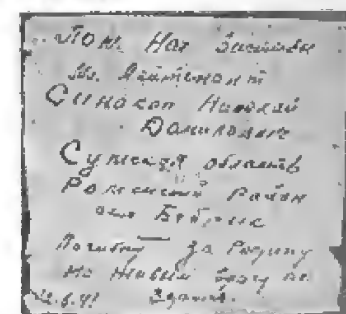 Пом. Нач Заставы
Мл. Лейтенант
Синокоп Николай
Данилович
Сумская область
Роменский район
село Бобрик
Погибну за Родину
но живым врагу не
22.6.41 здамся.